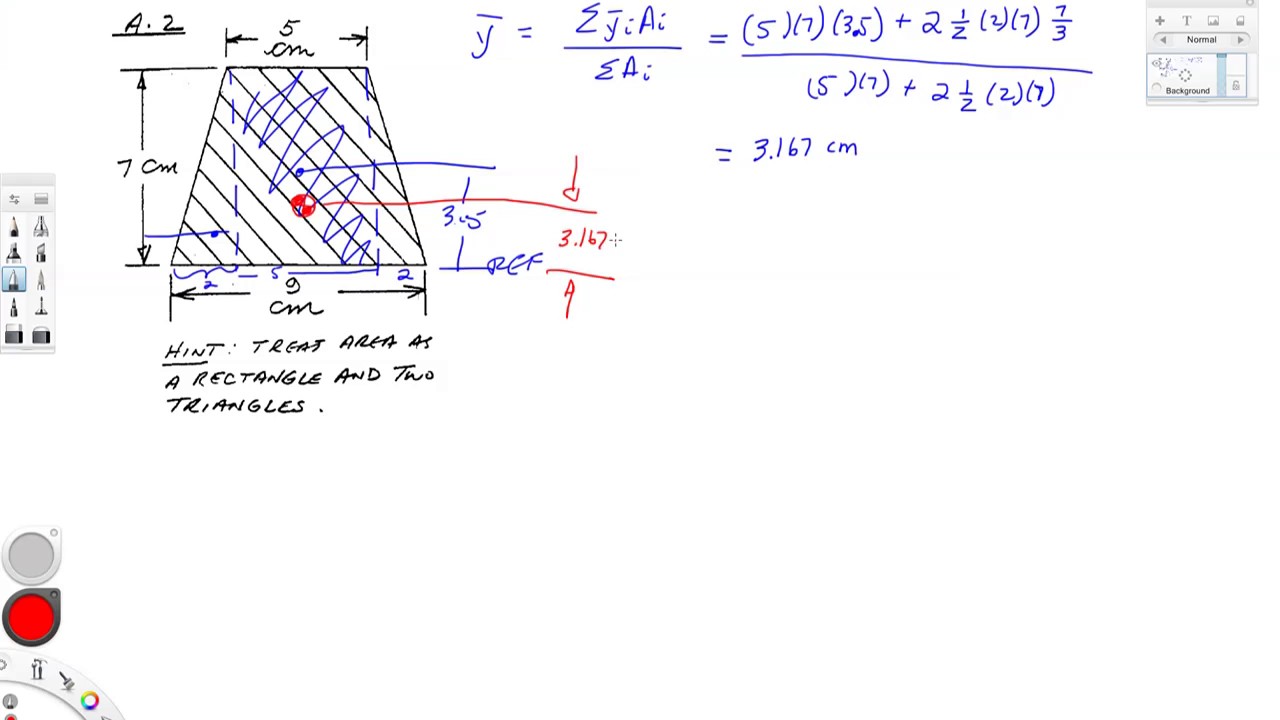 A.2
5
cm
7 cm
3.5
3.167
REF
2
5
2
9
cm
HINT: TREAT AREA AS
A RECTANGLE AND TWO
TRIANGLES.
ȳ = Σ ȳi Ai / Σ Ai = (5)(7)(3.5) + 2 ½ (2)(7) 7/3 / (5)(7) + 2 ½ (2)(7)
= 3.167 cm
T
Normal
Background